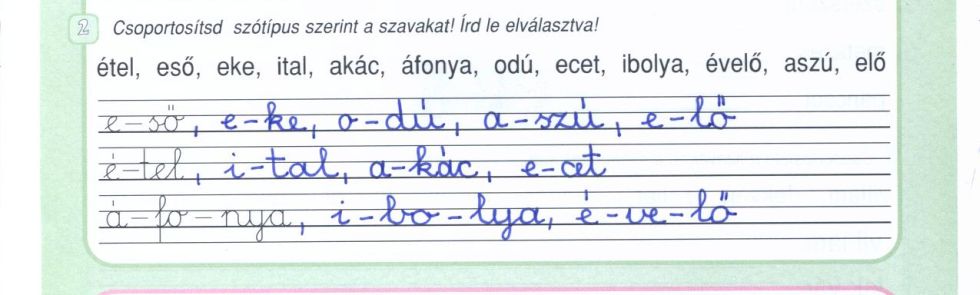 2 Csoportosítsd szótípus szerint a szavakat! Írd le elválasztva!
étel, eső, eke, ital, akác, áfonya, odú, ecet, ibolya, évelő, aszú, elő
e-ső, e-ke, o-dú, a-szú, e-lő
é-tel, i-tal, a-kác, e-cet
á-fo-nya, i-bo-lya, é-ve-lő